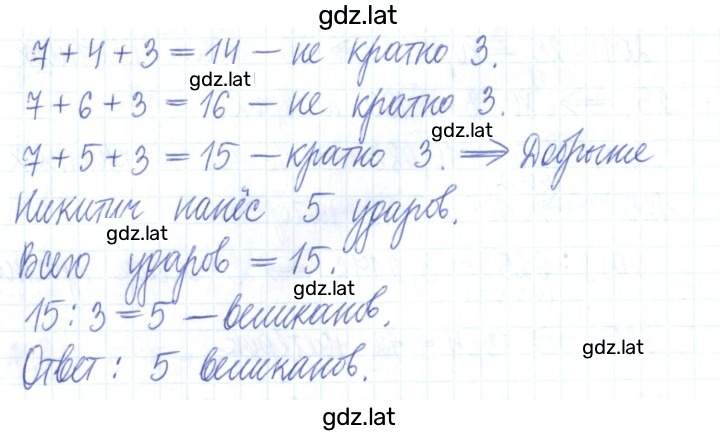 gdz.lat
7 + 4 + 3 = 14 — не кратно 3.
gdz.lat
7 + 6 + 3 = 16 — не кратно 3.
gdz.lat
7 + 5 + 3 = 15 — кратно 3. ⟹ Добрыне
Никитич нанёс 5 ударов.
gdz.lat
Всего ударов = 15.
gdz.lat
15 : 3 = 5 — великанов.
gdz.lat
Ответ: 5 великанов.
gdz.lat